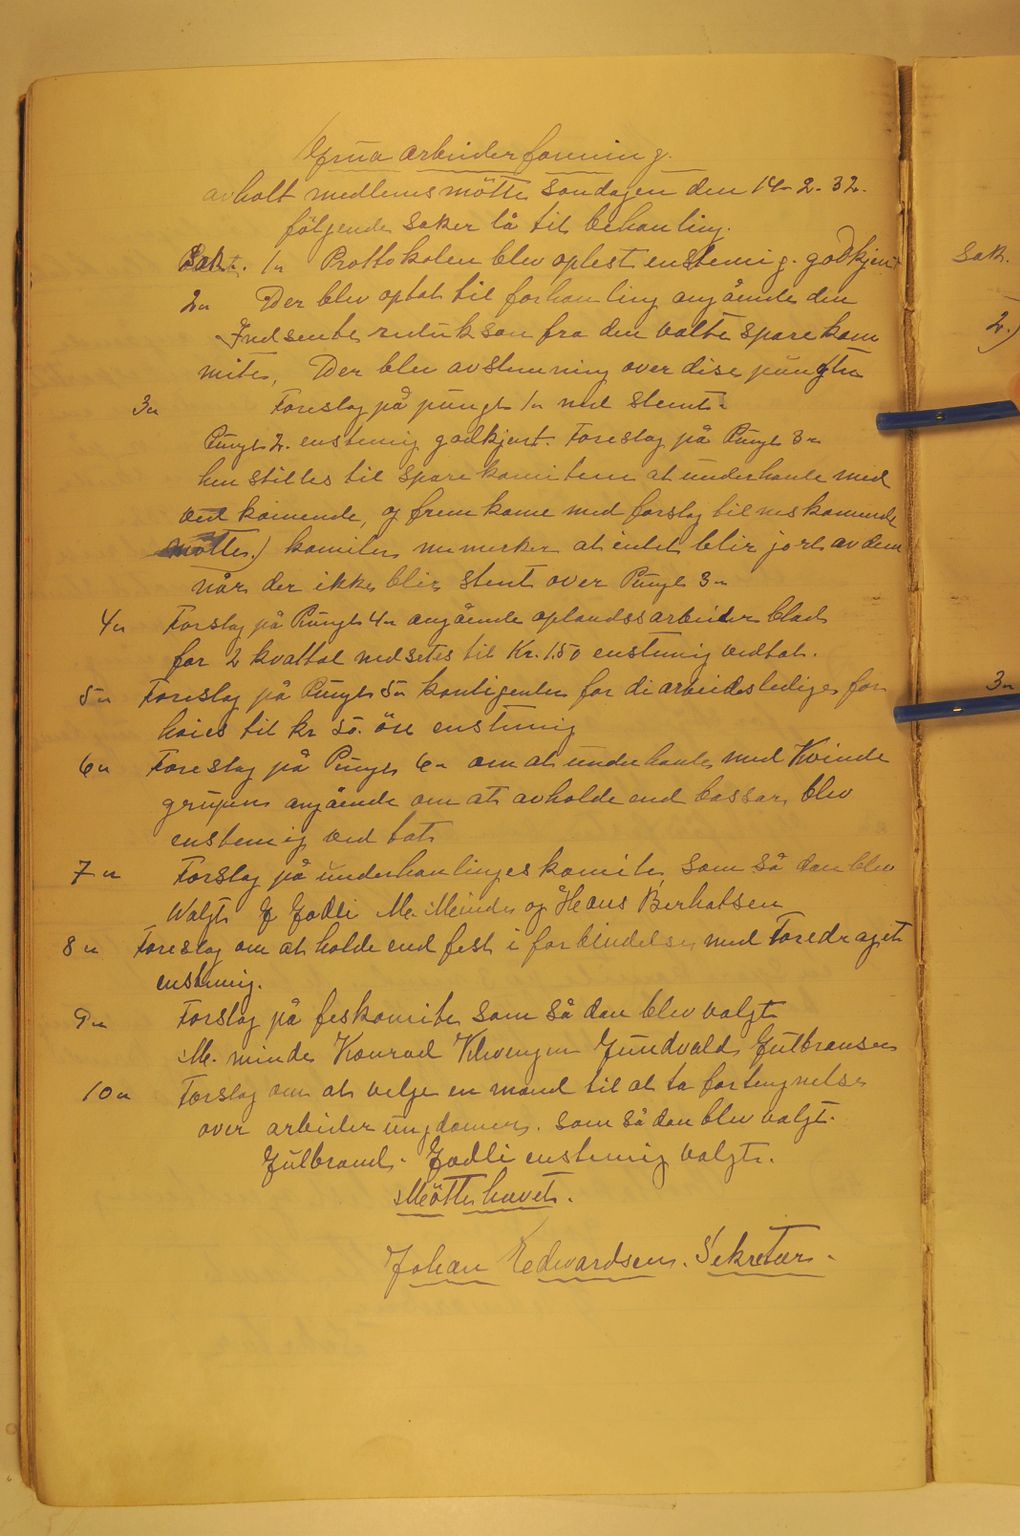 Grua arbeiderforening.
avholt medlemsmötte söndagen den 14-2-32.
fölgende saker lå til behanling.
Sak. 1n Prottokolen blev oplest enstemig. godkjent
2n Der blev optat til forhanling angående den
Indsente redukson fra den valte sparekom
mite, Der blev avstemning over dise pungter
3n Foreslag på pungt 1n ned stemt.
Pungt 2. enstemig godkjent. Foreslag på Pungt 3n
henstilles til sparekomiteen at underhanle med
ved komende, og frem kome med forslag til neskomende
mötte.) komiten memerker at intet blir jort av dem
når der ikke blir stemt over Pungt 3n
4n Forslag på Pungt 4n angående oplandssarbeider blad
for 2 kvattal nedsetes til Kr. 1.50 enstemig vedtat.
5n Foreslag på Pungt 5n kontigenten for di arbeidsledige for
höies til kr 50. öre enstemig
6n Foreslag på Pungt 6n om at underhanle med Kvinde
grupen angående om at avholde end bassar, blev
enstemig ved tat
7n Forslag på underhanlingeskomite som så dan blev
Walgt G Godli M. Minde og Hans Berhatsen
8n Foreslag om at holde end fest i forbindelse med Foredraget
enstemig.
9n Forslag på feskomite som så dan blev valgt
M. minde Konrad Klevengen Gundvald Gulbransen
10n Forslag om at velge en mand til at ta fortengnelse
over arbeider ungdomen. som så dan blev valgt.
Gulbrand. Godli enstemig valgt.
Mötte hevet.
Johan Edwardsen. Sekretær.
Sak.
2.)
3n